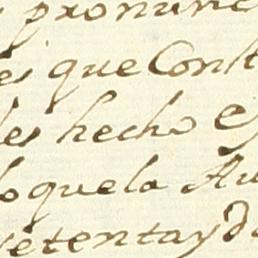 pronun
es que Const
les hecho e
lo que la Au
setenta y d